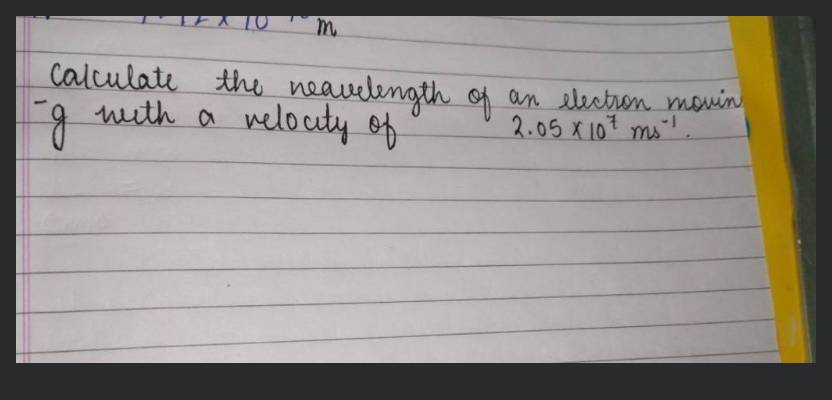 m
Calculate the wavelength of an electron movin
-g with a velocity of 2.05 x 10⁷ ms⁻¹.